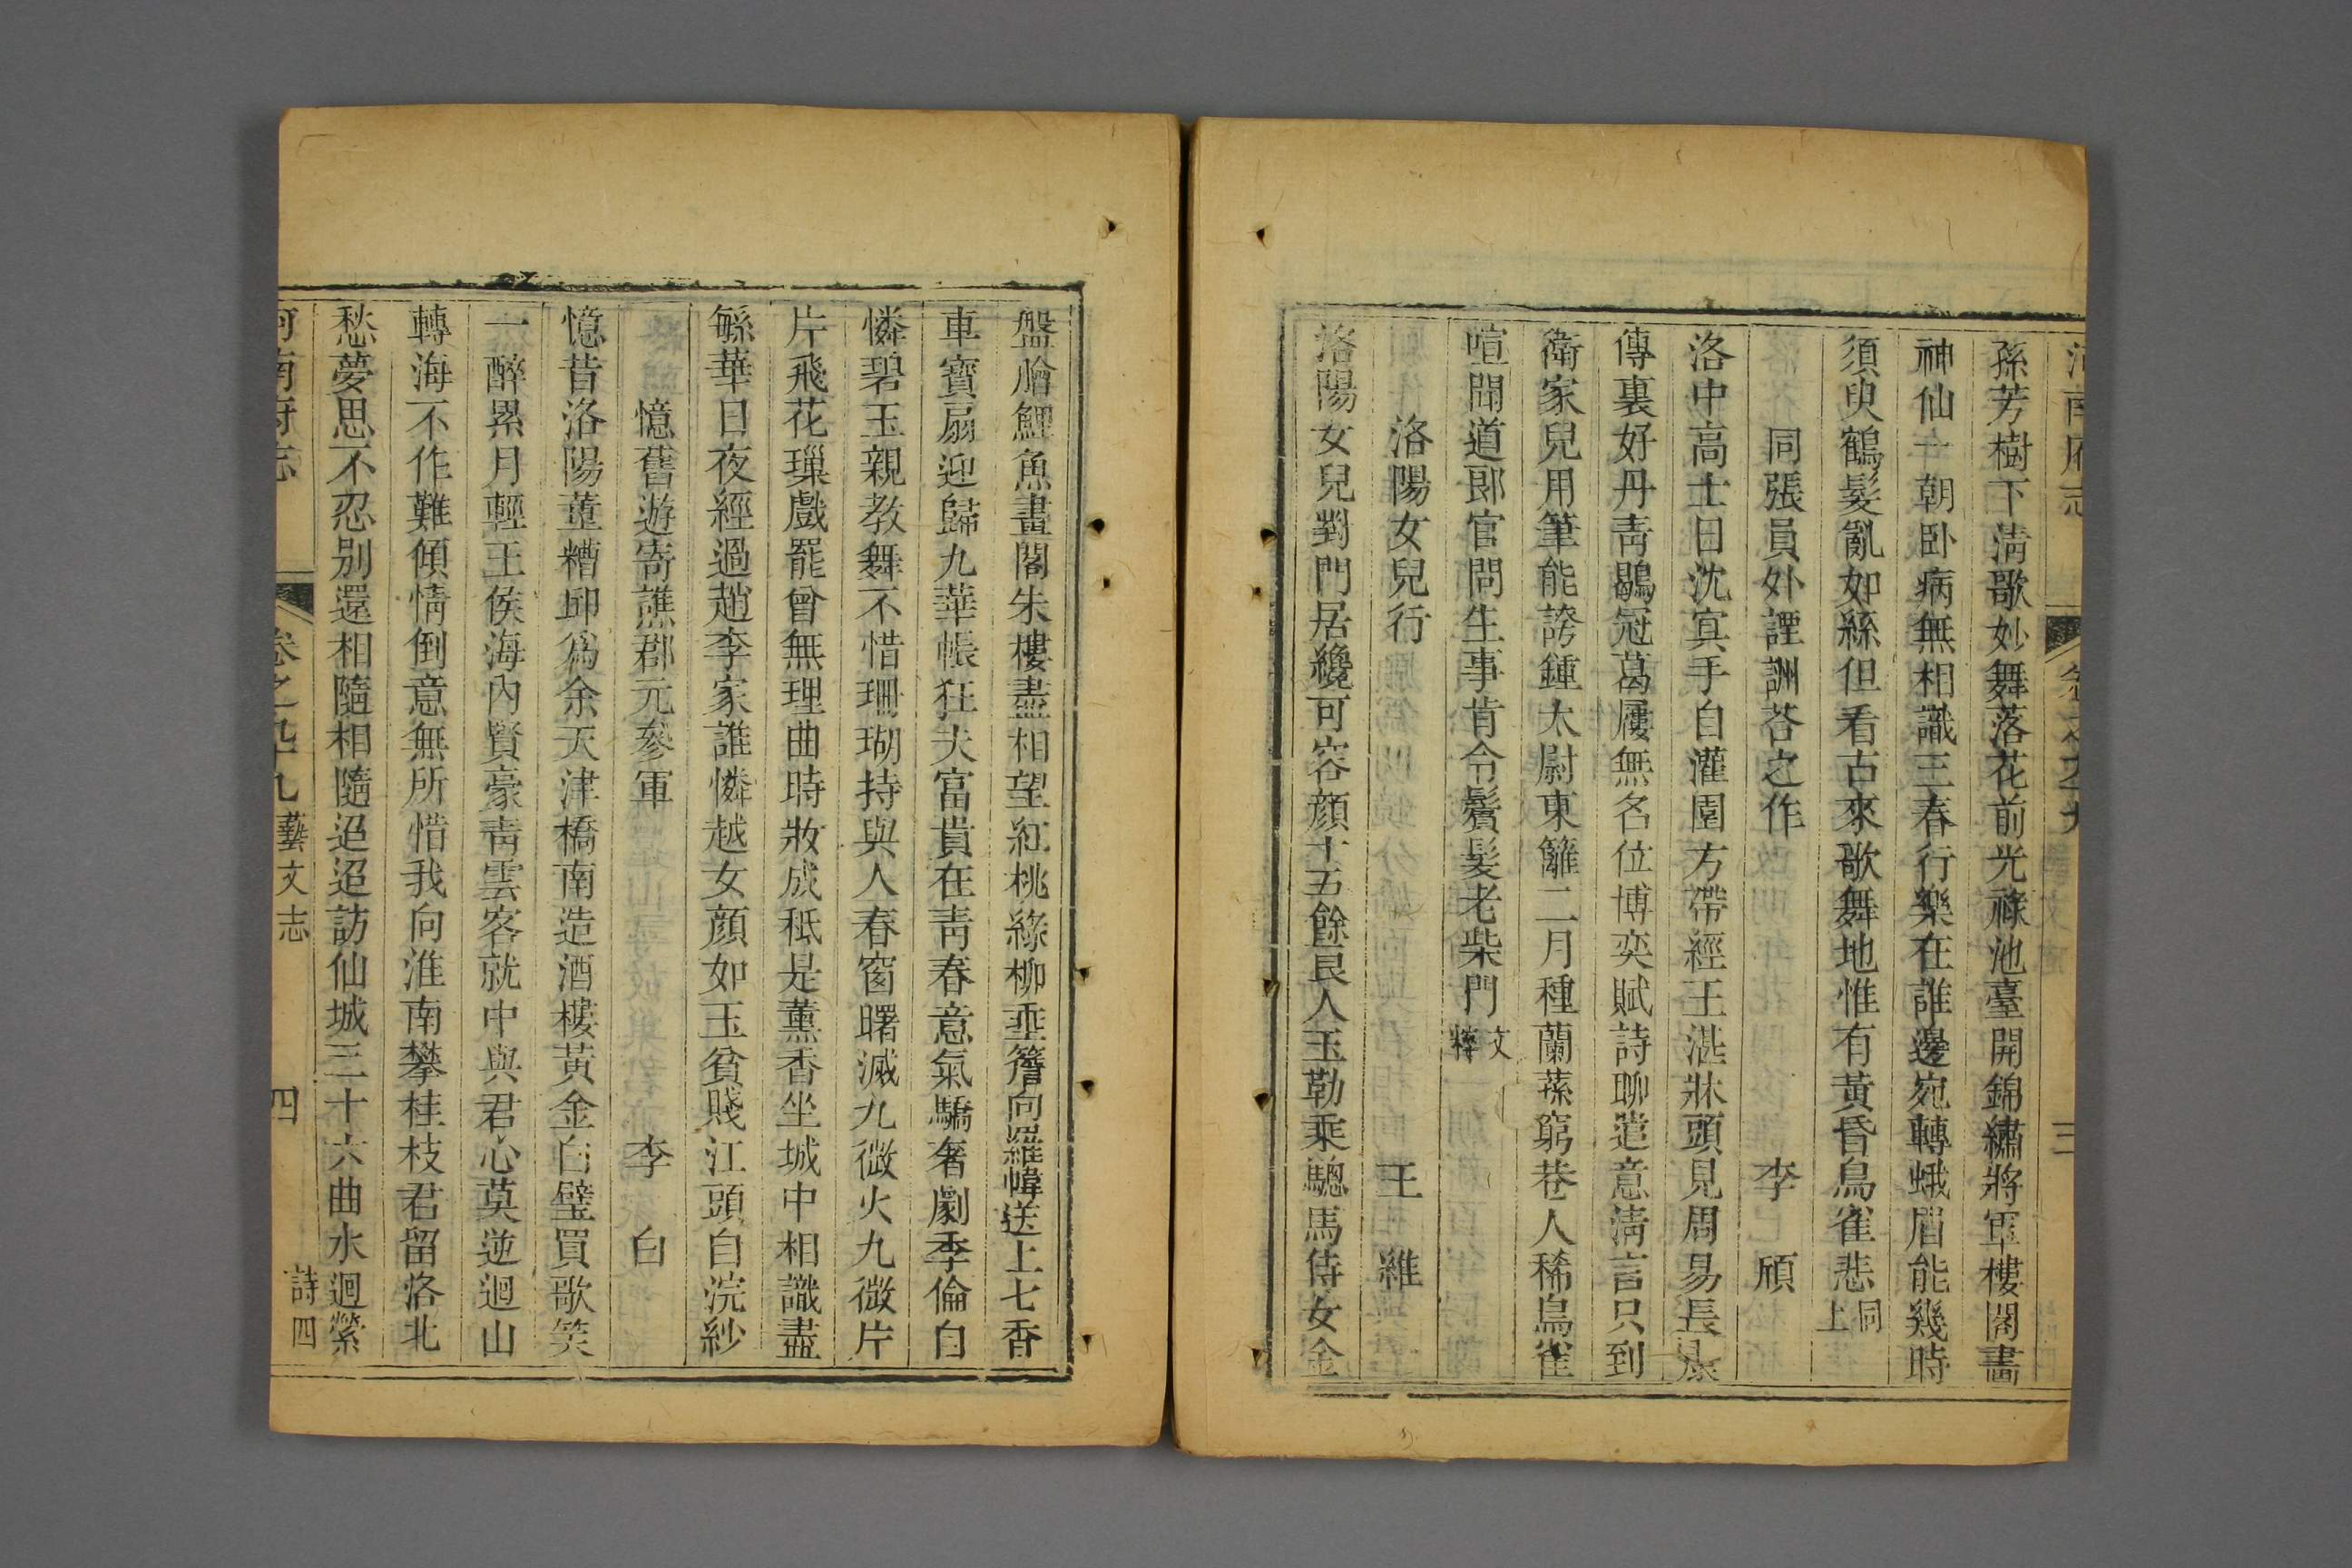 河南府志
三
孫芳樹下淸歌妙舞落花前光祿池臺開錦繡將軍樓閣畵
神仙一朝卧病無相識三春行樂在誰邊宛轉蛾眉能幾時
須臾鶴髮亂如絲但看古來歌舞地惟有黃昏鳥雀悲同上
同張員外諲詶荅之作 李頎
洛中高士日沈冥手自灌園方帶經王湛牀頭見周易長康
傳裏好丹靑鶡冠葛屨無名位博奕賦詩聊遣意淸言只到
衛家兒用筆能誇鍾太尉東籬二月種蘭蓀窮巷人稀鳥雀
喧聞道郎官問生事肯令鬢髮老柴門文粹
洛陽女兒行 王維
洛陽女兒對門居纔可容顏十五餘良人玉勒乘驄馬侍女金
盤膾鯉魚畫閣朱樓盡相望紅桃綠柳垂簷向羅幃送上七香
車寶扇迎歸九華帳狂夫富貴在靑春意氣驕奢劇季倫自
憐碧玉親教舞不惜珊瑚持與人春窗曙滅九微火九微片
片飛花璅戲罷曾無理曲時妝成秪是薰香坐城中相識盡
緐華日夜經過趙李家誰憐越女顏如玉貧賤江頭自浣紗
憶舊遊寄譙郡元參軍 李白
憶昔洛陽董糟邱爲余天津橋南造酒樓黃金白璧買歌笑
一醉累月輕王侯海內賢豪靑雲客就中與君心莫逆迴山
轉海不作難傾情倒意無所惜我向淮南攀桂枝君留洛北
愁夢思不忍别還相隨相隨迢迢訪仙城三十六曲水迴縈
河南府志 卷之 九藝文志 四 詩四